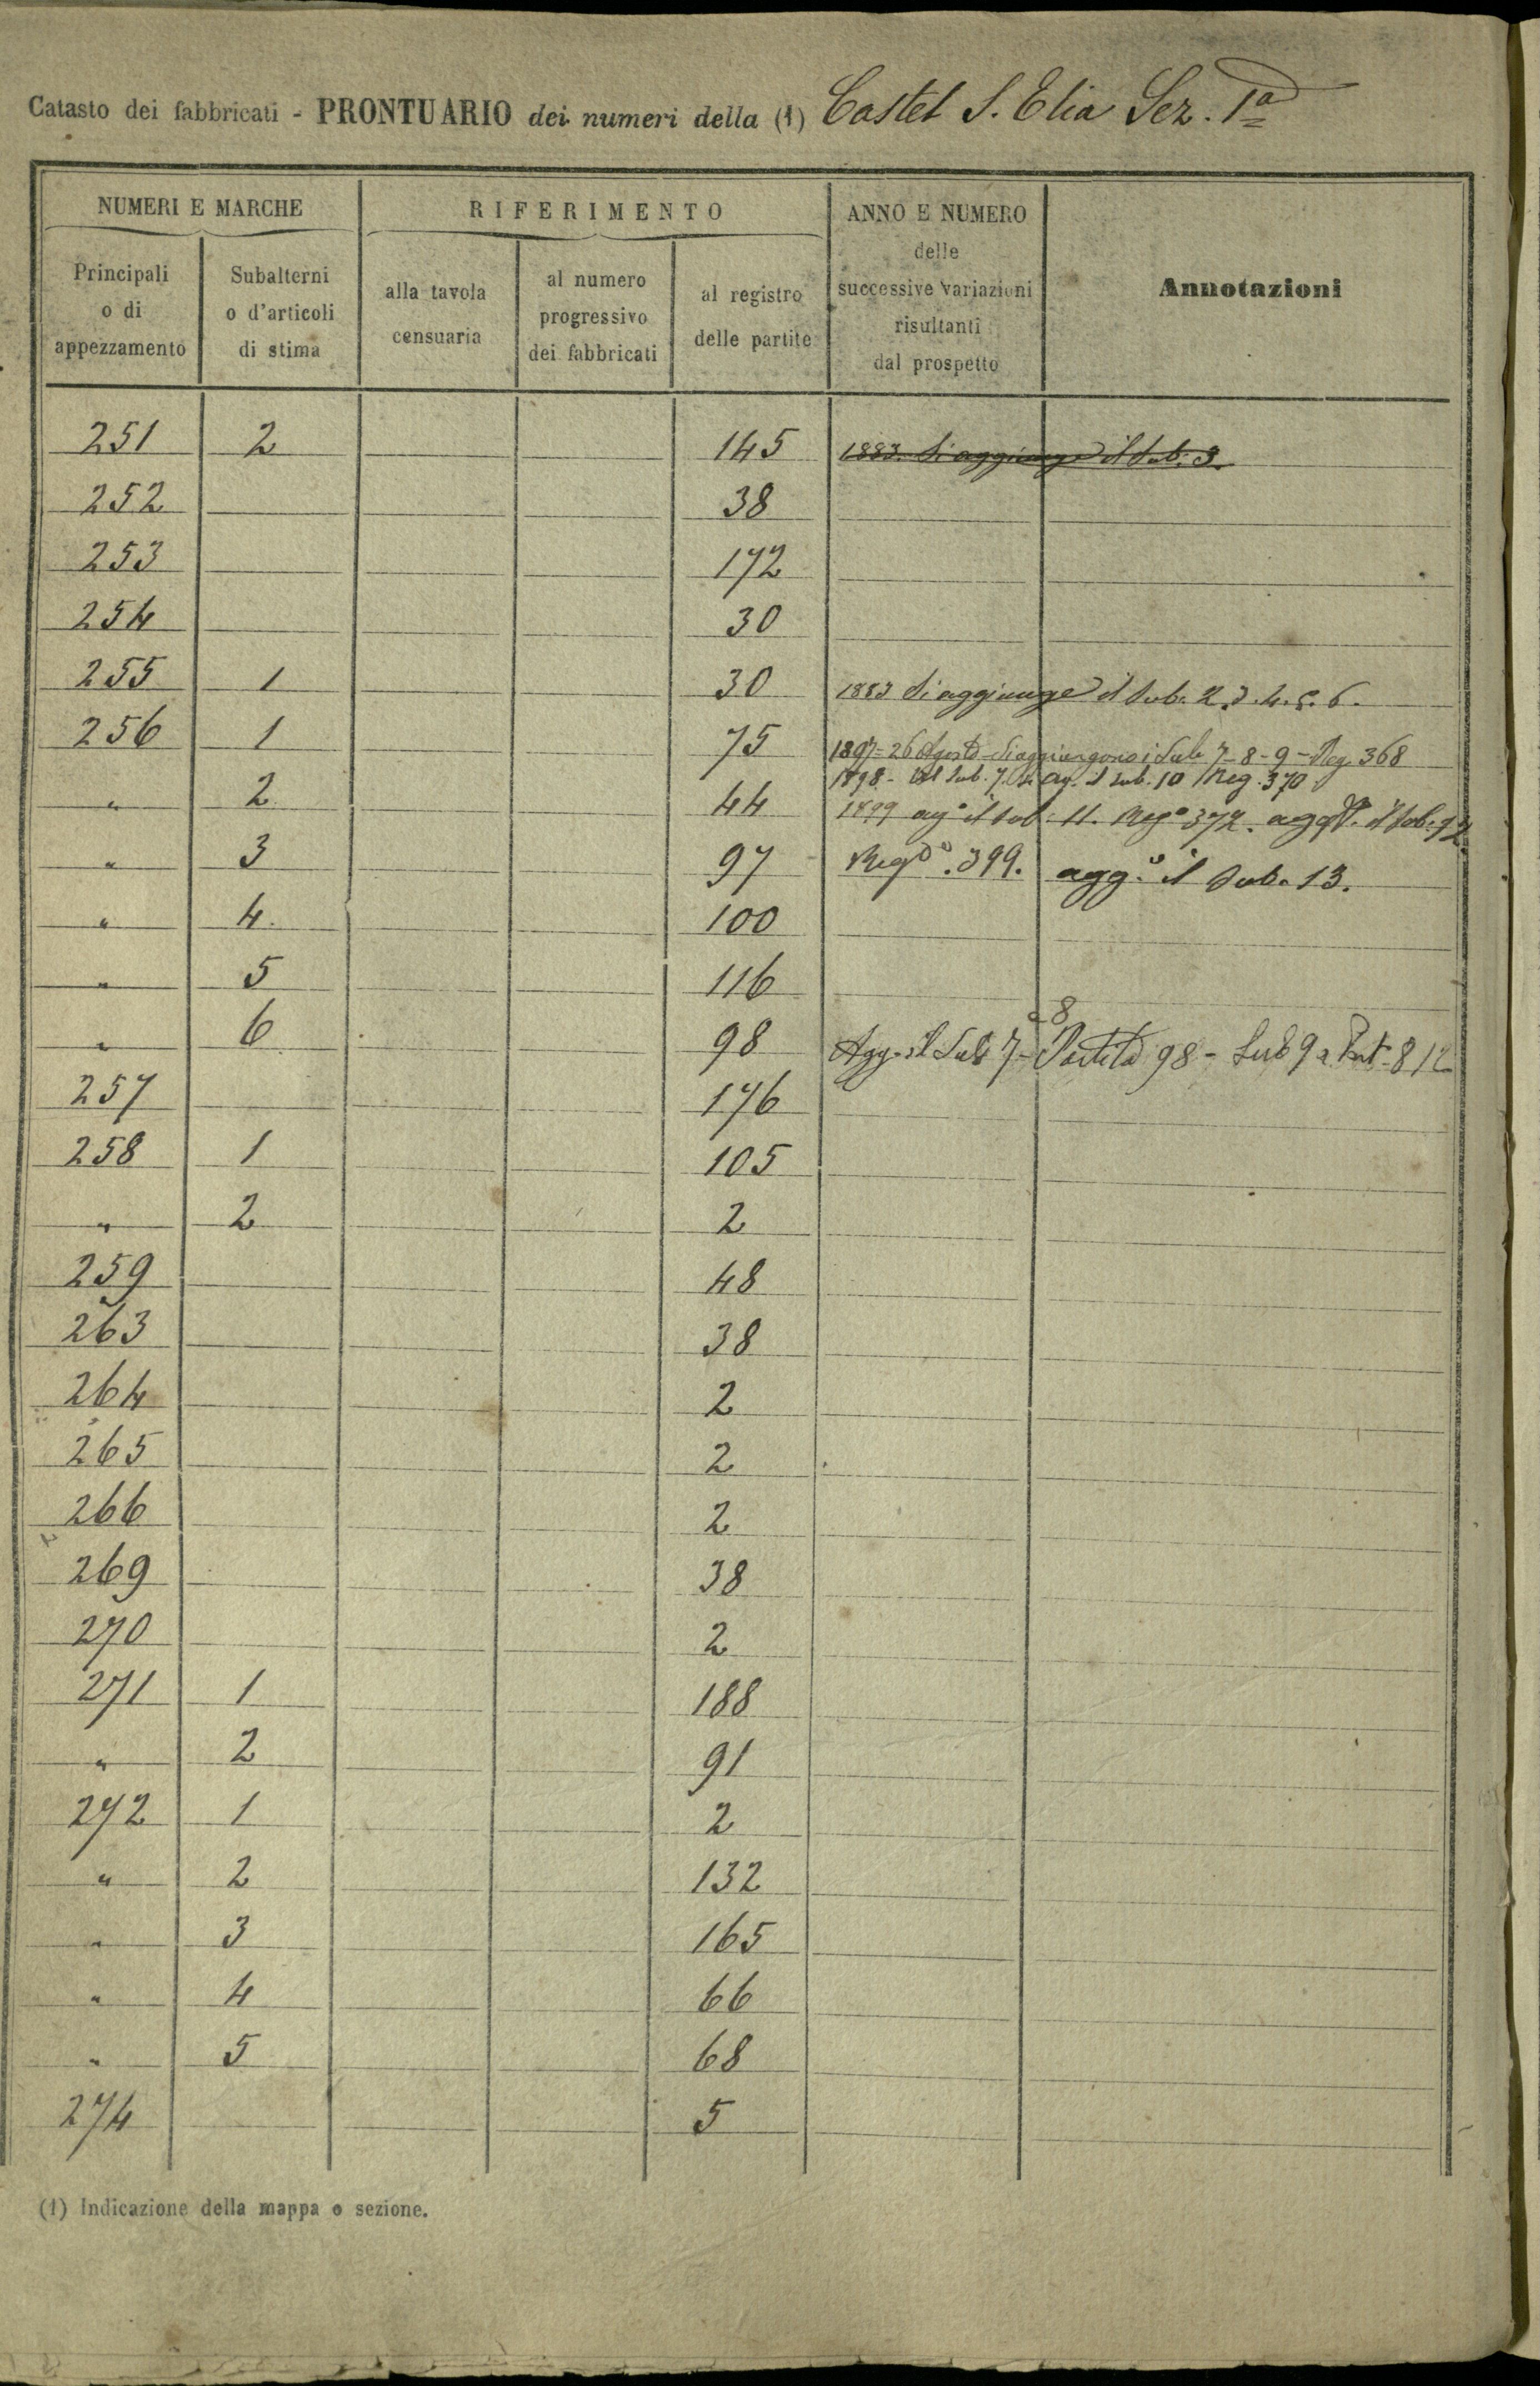 Catasto dei fabbricati - PRONTUARIO dei numeri della (1) Castel S. Elia Sez. 1a
NUMERI E MARCHE
Principali o di appezzamento
Subalterni o d'articoli di stima
RIFERIMENTO
alla tavola censuaria
al numero progressivo dei fabbricati
al registro delle partite
ANNO E NUMERO delle successive variazioni risultanti dal prospetto
Annotazioni
251 2 145 1883. Si aggiunge il Sub. 3.
252 38
253 172
254 30
255 1 30 1883 Si aggiunge il Sub. 2.3.4.5.6.
256 1 75 1897 = 26 Agosto Si aggiungono i Sub 7-8-9 - Reg. 368
1898 - Sub. 7. il sub. 10 Reg. 370
" 2 44 1899 ago il Sub. 11. Rego 372. il Sub. 12
" 3 97 399. agg.o il Sub. 13.
" 4 100
" 5 116
" 6 98 Agg. il Sub 7 - 8 Partita 98 - Sub 9 a Part. 812
257 176
258 1 105
" 2 2
259 48
263 38
264 2
265 2
266 2
269 38
270 2
271 1 188
" 2 91
272 1 2
" 2 132
" 3 165
" 4 66
" 5 68
274 5
(1) Indicazione della mappa o sezione.